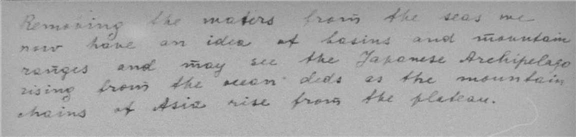 Removing the waters from the seas we
now have an idea of basins and mountain
ranges and may see the Japanese Archipelago
rising from the ocean beds as the mountain
chains of Asia rise from the plateau.